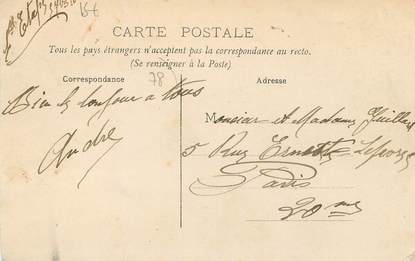 15€
CARTE POSTALE
Tous les pays étrangers n'acceptent pas la correspondance au recto.
(Se renseigner à la Poste)
Correspondance
78
Adresse
Bien le bonjour a tous
André
Monsieur et Madame
5 Rue Ernest
Paris
20me